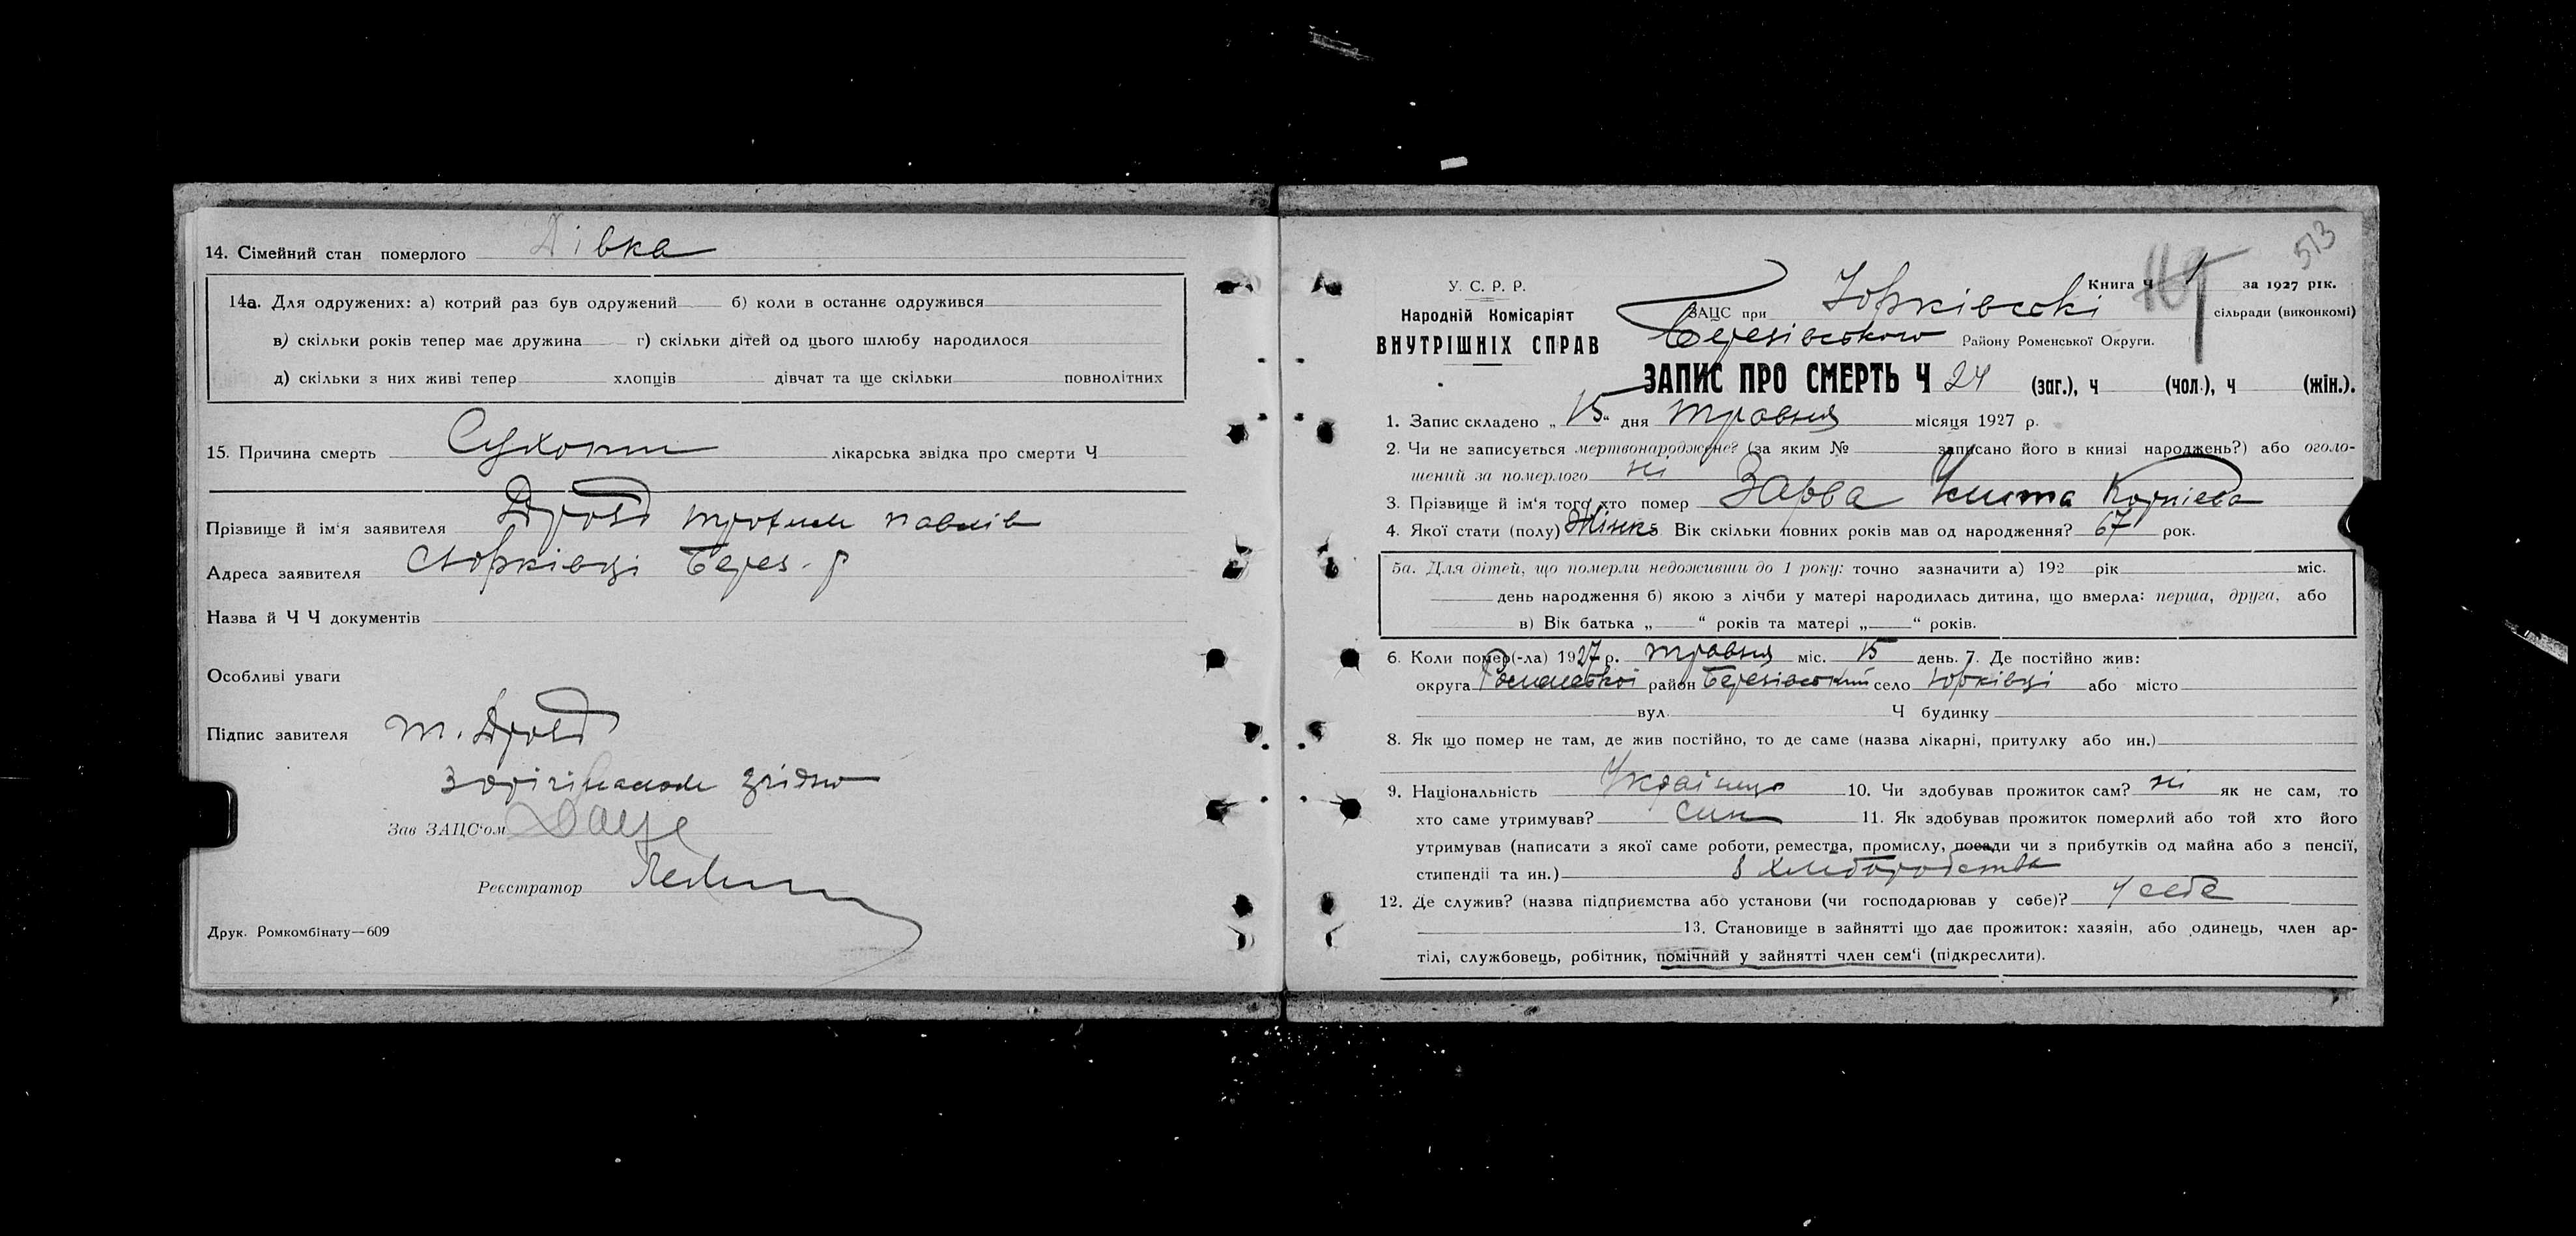 14. Сімейний стан померлого Дівка
14а. Для одружених: а) котрий раз був одружений б) коли в останнє одружився
в) скільки років тепер має дружина г) скільки дітей од цього шлюбу народилося
д) скільки з них живі тепер хлопців дівчат та ще скільки повнолітних
15. Причина смерть Сухоти лікарська звідка про смерти Ч
Прізвище й ім'я заявителя Дрозд Трохим Павлів
Адреса заявителя с Юрківці Берез. р
Назва й Ч Ч документів
Особливі уваги
Підпис завителя Т. Дрозд
З орігіналом згідно
Зав ЗАЦС'ом
Реєстратор
Друк. Ромкомбінату—609
513
У. С. Р. Р.
Народній Комісаріят
ВНУТРІШНІХ СПРАВ
Книга Ч 1 за 1927 рік.
ЗАЦС при Юрківські сільради (виконкомі)
Березівського Району Роменської Округи.
ЗАПИС ПРО СМЕРТЬ Ч 24 (заг.), ч (чол.), ч (жін.).
1. Запис складено „15" дня травня місяця 1927 р.
2. Чи не записується мертвонароджене? (за яким № записано його в книзі народжень?) або оголо-
шений за померлого ні
3. Прізвище й ім'я того хто помер Зарва Улита Корніева
4. Якої стати (полу) Жінка Вік скільки повних років мав од народження? 67 рок.
5а. Для дітей, що померли недоживши до 1 року: точно зазначити а) 192 рік міс.
день народження б) якою з лічби у матері народилась дитина, що вмерла: перша, друга, або
в) Вік батька „ “ років та матері „ “ років.
6. Коли помер(-ла) 1927 р. травня міс. 15 день. 7. Де постійно жив:
округа Роменської район Березівський село Юрківці або місто
вул. Ч будинку
8. Як що помер не там, де жив постійно, то де саме (назва лікарні, притулку або ин.)
9. Національність 10. Чи здобував прожиток сам? ні як не сам, то
хто саме утримував? син 11. Як здобував прожиток померлий або той хто його
утримував (написати з якої саме роботи, ремества, промислу, посади чи з прибутків од майна або з пенсії,
стипендії та ин.) з хліборобства
12. Де служив? (назва підприємства або установи (чи господарював у себе)? у себе
13. Становище в зайнятті що дає прожиток: хазяін, або одинець, член ар-
тілі, службовець, робітник, помічний у зайнятті член сем'і (підкреслити).